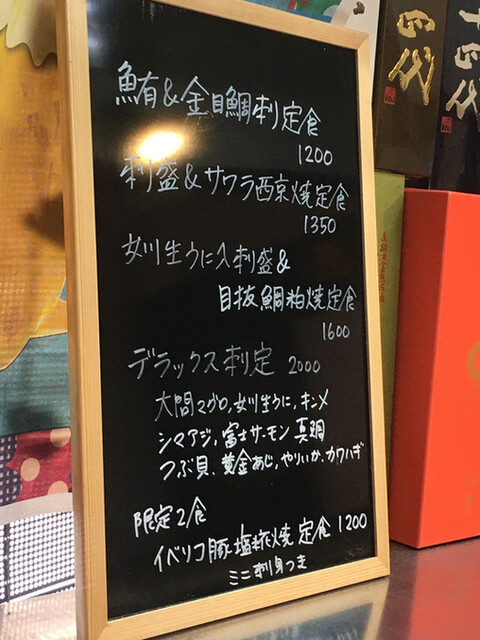 鮪&金目鯛刺定食
1200
刺盛&サワラ西京焼定食
1350
女川生うに入刺盛&
目抜鯛粕焼定食
1600
デラックス刺定 2000
大間マグロ,女川生うに,キンメ
シマアジ,富士サーモン 真鯛
つぶ貝,黄金あじ,やりいか,カワハギ
限定2食
イベリコ豚塩糀焼定食1200
ミニ刺身つき
四代
十四代